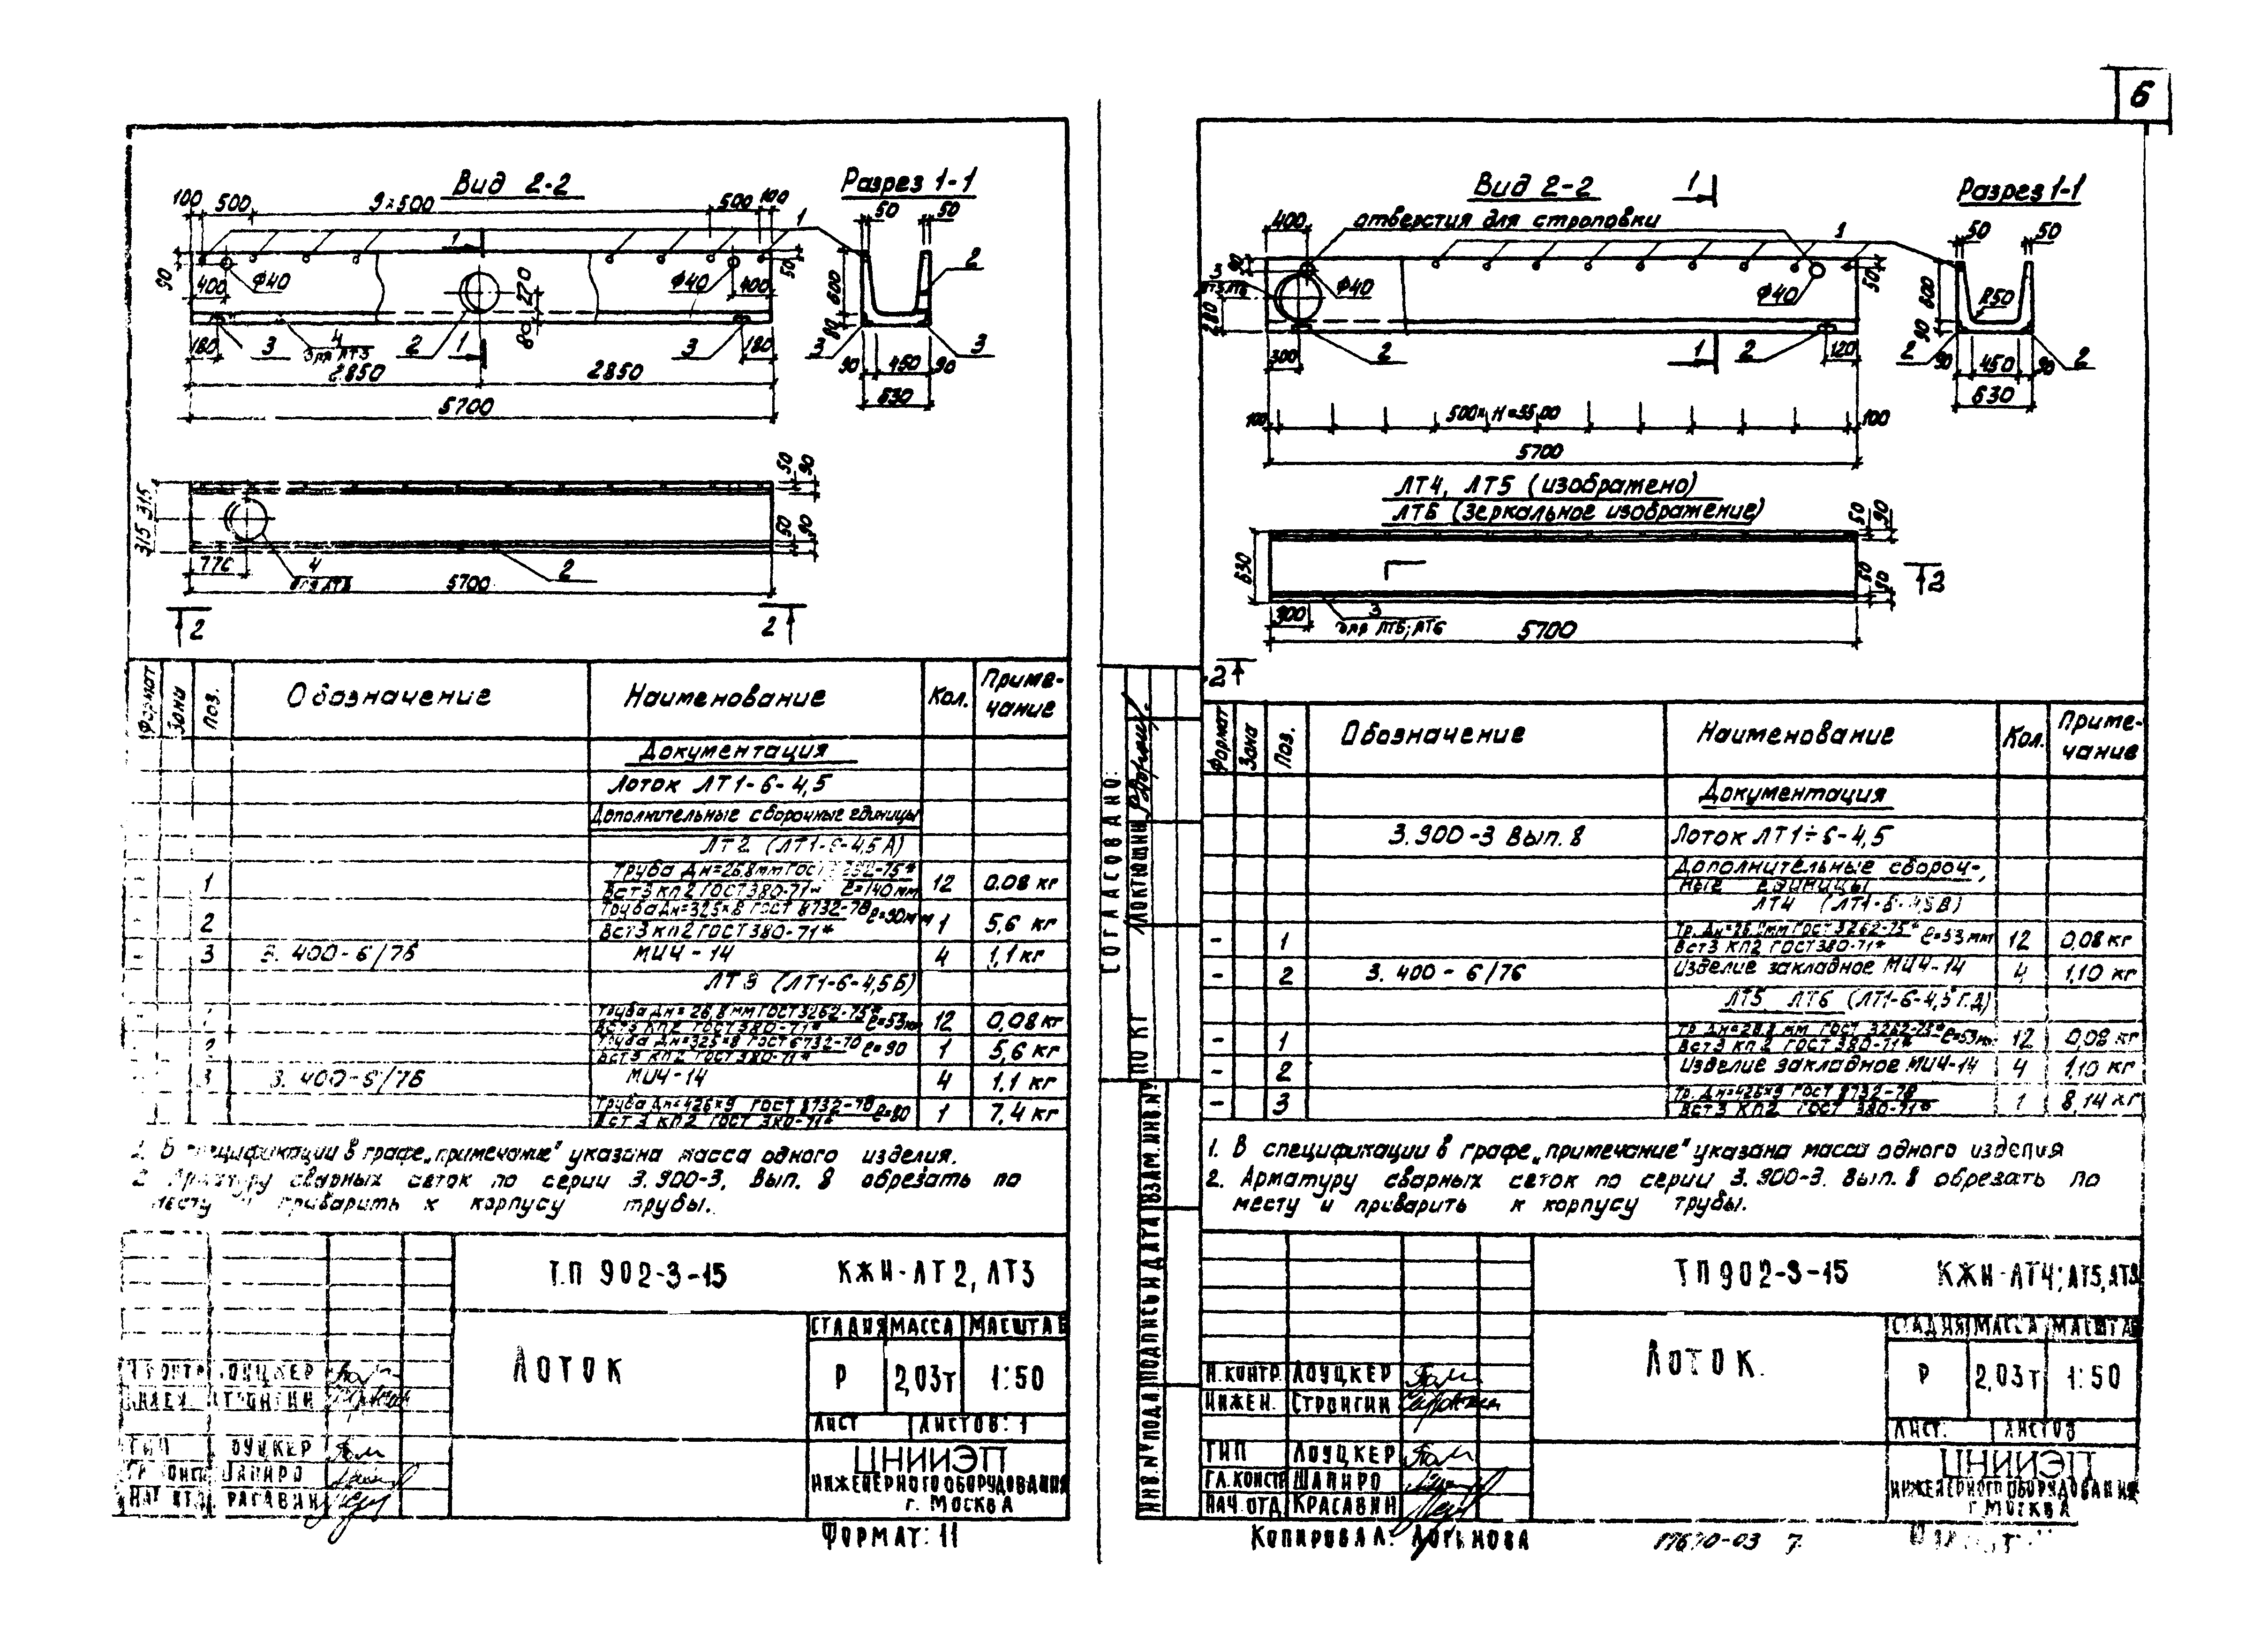 6
Вид 2-2
Разрез 1-1
100 500 9×500 500 100
1
50 50
1
90 400 Ф40 Ф40 400 50
270
80
600
80
2
180 3 4 2 1 3 180
для ЛТ3
3 3
90 450 90
630
2850 2850
5700
315 315
50 90
50 90
4 2
5700
2 2
Формат Зона Поз. Обозначение Наименование Кол. Приме-
чание
Документация
Лоток ЛТ1-6-4,5
Дополнительные сборочные единицы
ЛТ2 (ЛТ1-6-4,5А)
- 1 Труба Дн=26,8мм ГОСТ 12 0.08 кг
Вст3 кп2 ГОСТ 380-71* ℓ=140мм
- 2 Труба Дн=325×8 ГОСТ 8732-78 ℓ=90мм 1 5,6 кг
Вст3 кп2 ГОСТ 380-71*
- 3 3.400-6/76 МИ4-14 4 1,1 кг
ЛТ3 (ЛТ1-6-4,5Б)
Труба Дн=26,8мм ГОСТ 3262-75* ℓ=53мм 12 0,08 кг
Вст3 кп2 ГОСТ 380-71*
Труба Дн=325×8 ГОСТ ℓ=90 1 5,6 кг
Вст3 кп2 ГОСТ 380-71*
3 3.400-6/76 МИ4-14 4 1,1 кг
Труба Дн=426×9 ГОСТ 8732-78 ℓ=80 1 7,4 кг
Вст3 кп2 ГОСТ 380-71*
1. В спецификации в графе „примечание" указана масса одного изделия.
2. Арматуру сварных сеток по серии 3.900-3, Вып. 8 обрезать по
месту и приварить к корпусу трубы.
ТП 902-3-15 КЖИ-ЛТ2, ЛТ3
Лоток
СТАДИЯ МАССА МАСШТАБ
Р 2,03т 1:50
ЛИСТ ЛИСТОВ: 1
ЦНИИЭП
ИНЖЕНЕРНОГО ОБОРУДОВАНИЯ
г. МОСКВА
ФОРМАТ: 11
Вид 2-2
1
Разрез 1-1
400 отверстия для строповки 1
50 50
90 Ф40 Ф40 50
280
600
90
R50
300 2 1 2 120
2 2
90 450 90
630
100 500× =5500 100
5700
ЛТ4, ЛТ5 (изображено)
ЛТ6 (зеркальное изображение)
50 90
630
50 90
2
300 3
для ЛТ5; ЛТ6
5700
2
Формат Зона Поз. Обозначение Наименование Кол. Приме-
чание
Документация
3.900-3 Вып. 8 Лоток ЛТ1÷6-4,5
Дополнительные сбороч-
ные единицы
ЛТ4 (ЛТ1-6-4,5В)
- 1 Тр. Дн=26,8мм ГОСТ 3262-75* ℓ=53мм 12 0,08 кг
Вст3 кп2 ГОСТ 380-71*
- 2 3.400-6/76 Изделие закладное МИ4-14 4 1,10 кг
ЛТ5 ЛТ6 (ЛТ1-6-4,5 Г,Д)
- 1 Тр. Дн=26,8 мм ГОСТ 3262-75* ℓ=53мм 12 0,08 кг
Вст3 кп2 ГОСТ 380-71*
- 2 Изделие закладное МИ4-14 4 1,10 кг
- 3 Тр. Дн=426×9 ГОСТ 8732-78 1 8,14 кг
Вст3 кп2 ГОСТ 380-71*
1. В спецификации в графе „примечание" указана масса одного изделия
2. Арматуру сварных сеток по серии 3.900-3. Вып. 8 обрезать по
месту и приварить к корпусу трубы.
СОГЛАСОВАНО:
ПО КТ ЛОКТЮШИН
ИНВ.№ ПОДЛ. ПОДПИСЬ И ДАТА ВЗАМ.ИНВ.№
ТП 902-3-15 КЖИ-ЛТ4; ЛТ5,
Лоток.
СТАДИЯ МАССА МАСШТАБ
Р 2,03т 1:50
ЛИСТ. ЛИСТОВ
Н.КОНТР. ЛОУЦКЕР
ИНЖЕН. СТРОНГИН
ГИП ЛОУЦКЕР
ГЛ.КОНСТР ШАПИРО
НАЧ.ОТД. КРАСАВИН
ЦНИИЭП
ИНЖЕНЕРНОГО ОБОРУДОВАНИЯ
г. МОСКВА
КОПИРОВАЛ:
17670-03 7